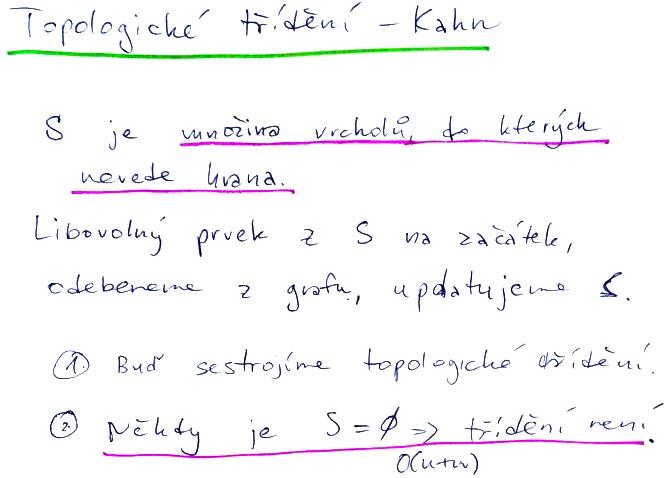 Topologické třídění – Kahn
S je množina vrcholů, do kterých
nevede hrana.
Libovolný prvek z S na začátek,
odebereme z grafu, updatujeme S.
1. Buď sestrojíme topologické třídění.
2. Někdy je S = ∅ => třídění není.
O(n+m)